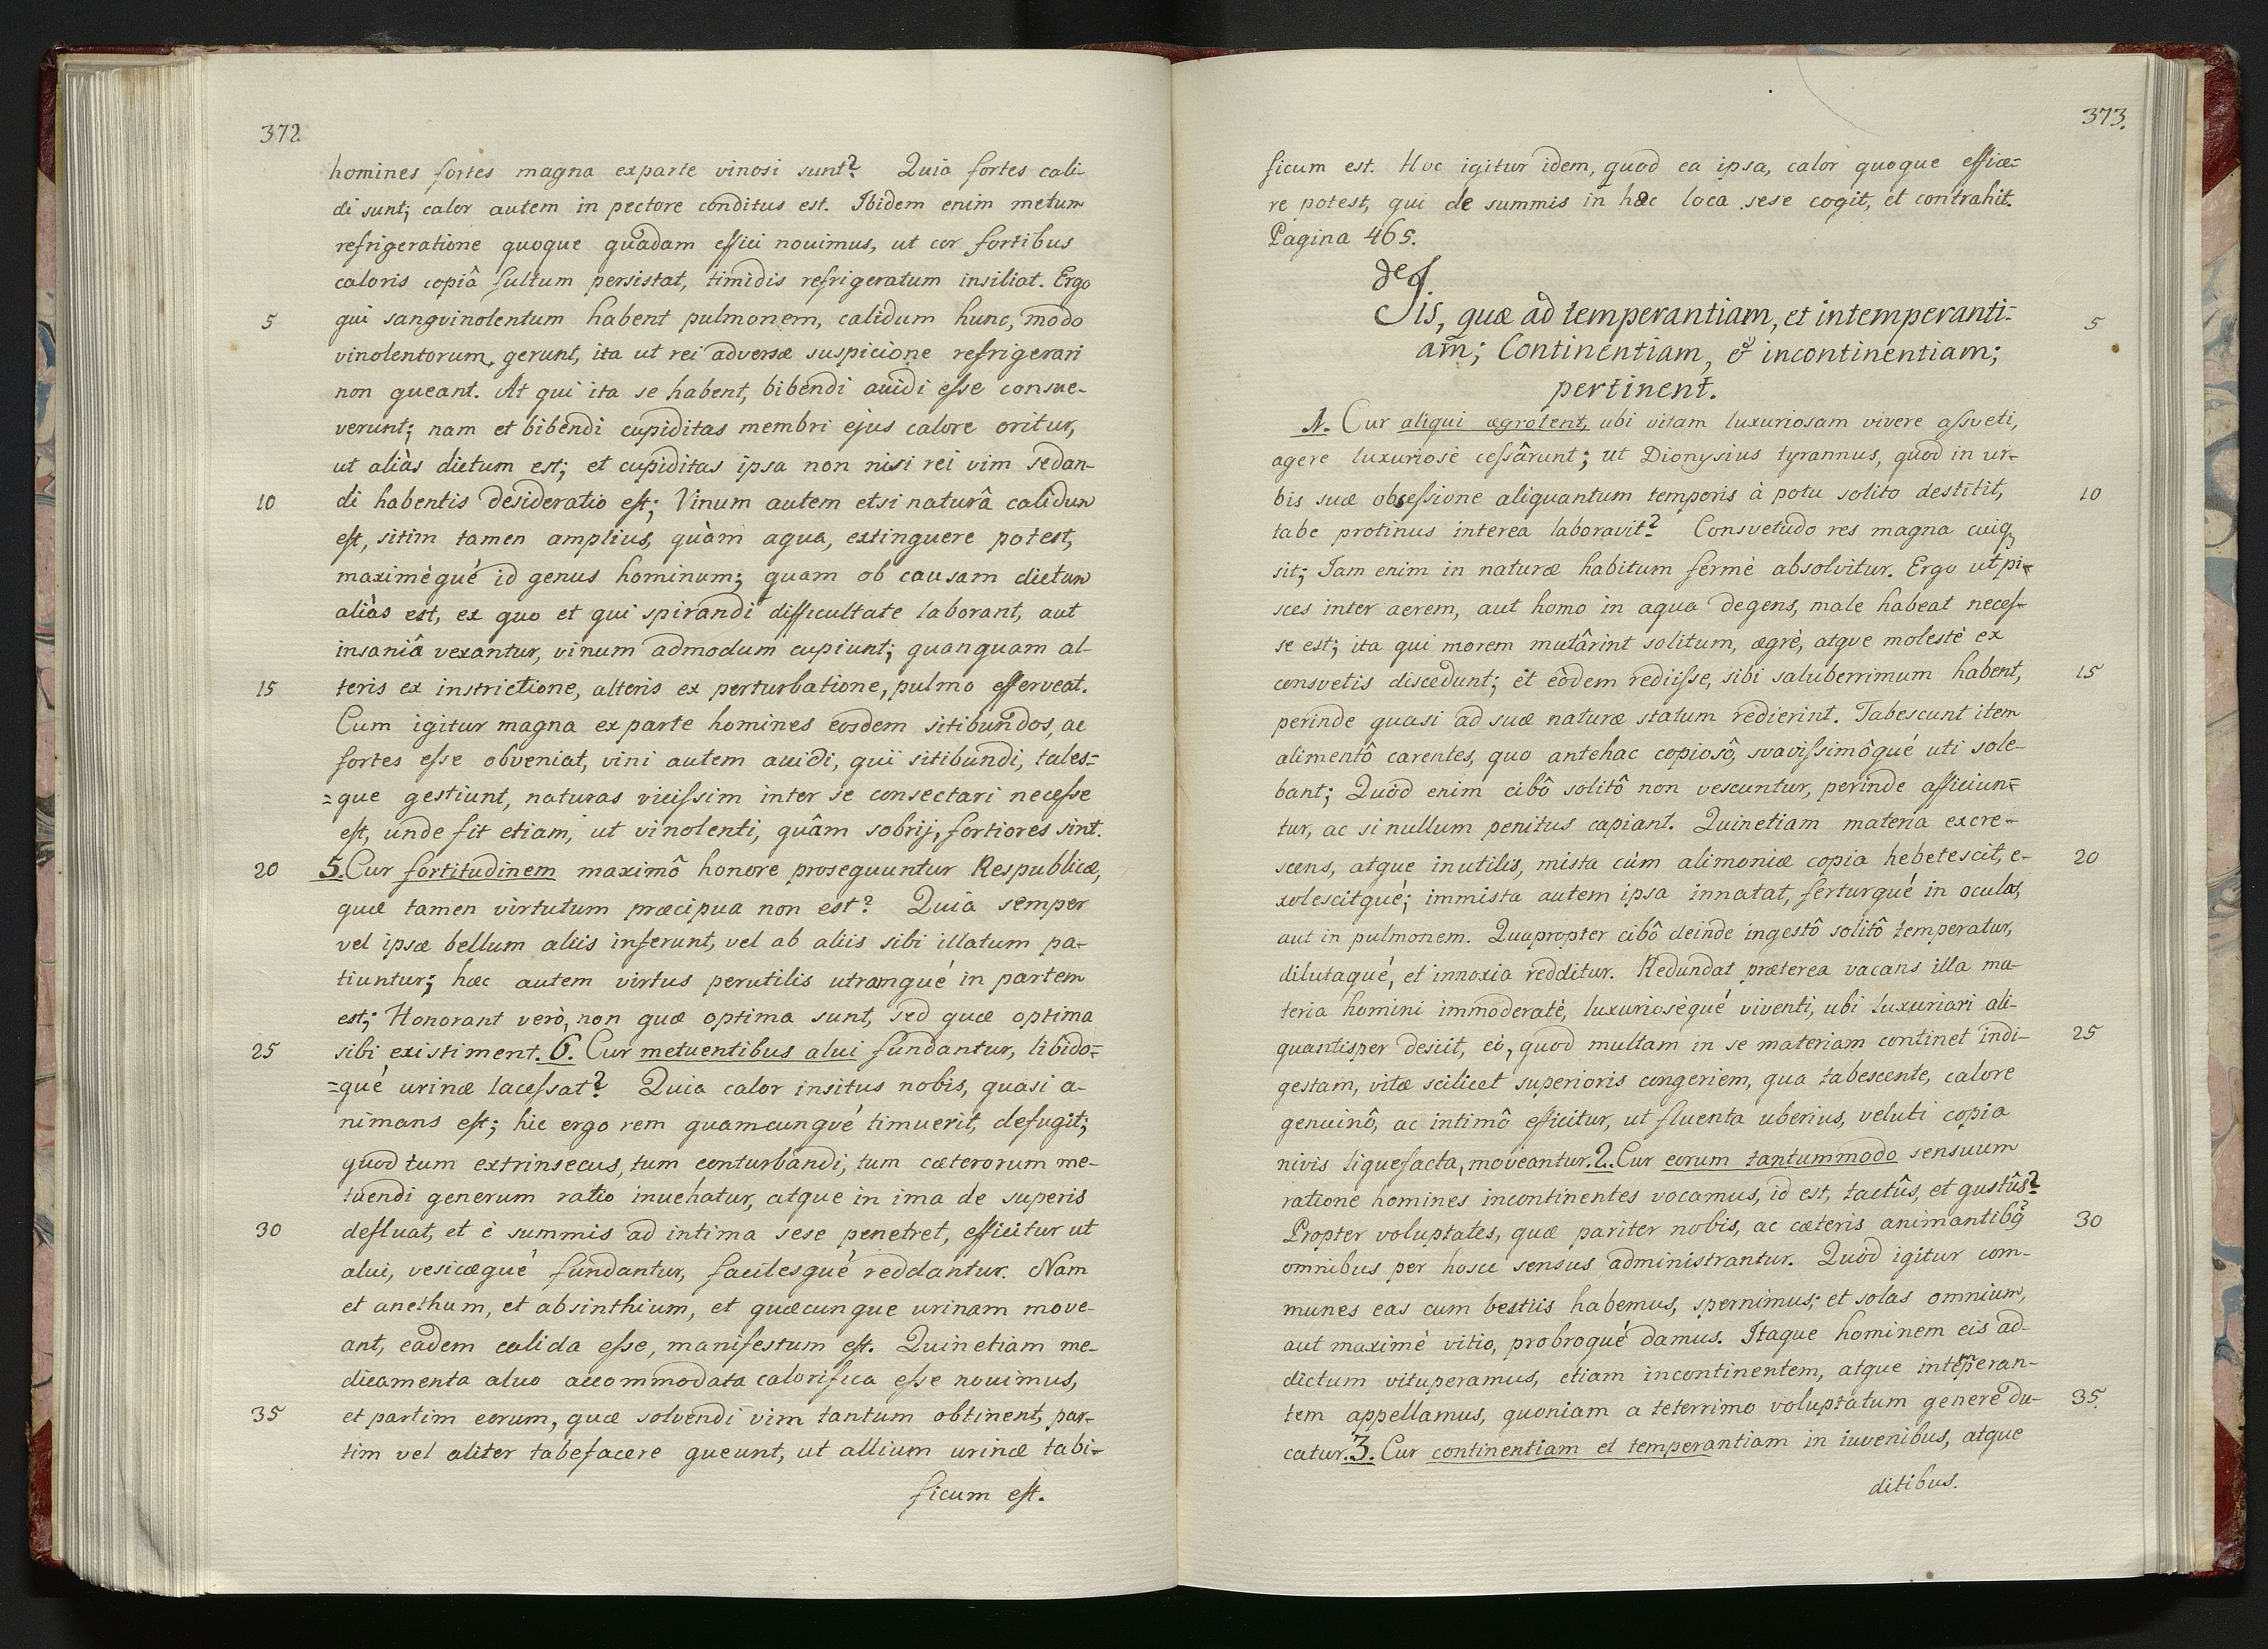 372
homines fortes magna exparte vinosi sunt? Quia fortes cali-
di sunt; calor autem in pectore conditus est. Ibidem enim metum
refrigeratione quoque quadam effici nouimus, ut cor fortibus
caloris copiâ fultum persistat, timidis refrigeratum insiliat. Ergo
5 qui sangvinolentum habent pulmonem, calidum hunc, modo
vinolentorum gerunt, ita ut rei adversæ suspicione refrigerari
non queant. At qui ita se habent, bibendi auidi esse consue-
verunt; nam et bibendi cupiditas membri ejus calore oritur,
ut aliàs dictum est; et cupiditas ipsa non nisi rei vim sedan-
10 di habentis desideratio est; Vinum autem etsi naturâ calidum
est, sitim tamen amplius, quàm aqua, extinguere potest,
maximèqué id genus hominum; quam ob causam dictum
aliàs est, ex quo et qui spirandi difficultate laborant, aut
insaniâ vexantur, vinum admodum cupiunt; quanquam al-
15 teris ex instrictione, alteris ex perturbatione, pulmo efferveat.
Cum igitur magna ex parte homines eosdem sitibundos, ac
fortes esse obveniat, vini autem auidi, qui sitibundi, tales=
=que gestiunt, naturas vicissim inter se consectari necesse
est, unde fit etiam, ut vinolenti, quâm sobrij, fortiores sint.
20 5. Cur fortitudinem maximô honore proseguuntur Respublicæ,
quæ tamen virtutum præcipua non est? Quia semper
vel ipsæ bellum aliis inferunt, vel ab aliis sibi illatum pa-
tiuntur; hæc autem virtus perutilis utramqué in partem
est; Honorant verò, non quæ optima sunt, sed quæ optima
25 sibi existiment. 6. Cur metuentibus alui fundantur, libido=
=qué urinæ lacessat? Quia calor insitus nobis, quasi a-
nimans est; hic ergo rem quamcunqvé timuerit, defugit;
quod tum extrinsecus, tum conturbandi, tum cæterorum me-
tuendi generum ratio inuehatur, atque in ima de superis
30 defluat, et è summis ad intima sese penetret, efficitur ut
alui, vesicæqué fundantur, facilesqué reddantur. Nam
et anethum, et absinthium, et quæcunque urinam move-
ant, eadem calida esse, manifestum est. Quinetiam me-
dicamenta aluo accommodata calorifica esse nouimus,
35 et partim eorum, quæ solvendi vim tantum obtinent, par-
tim vel aliter tabefacere queunt, ut allium urinæ tabi-
ficum est.
373.
ficum est. Hoc igitur idem, quod ea ipsa, calor quoque effice=
re potest, qui de summis in hæc loca sese cogit, et contrahit.
Pagina 465.
de
Iis, quæ ad temperantiam, et intemperanti=
5
am; Continentiam, & incontinentiam;
pertinent.
1. Cur aliqui ægrotent, ubi vitam luxuriosam vivere assveti,
agere luxuriosè cessârunt; ut Dionysius tyrannus, quod in ur-
bis suæ obsessione aliquantum temporis à potu solito destitit, 10
tabe protinus interea laboravit? Consvetudo res magna cuiq
sit; Iam enim in naturæ habitum fermè absolvitur. Ergo ut pi-
sces inter aerem, aut homo in aqua degens, male habeat neces-
se est; ita qui morem mutârint solitum, ægrè, atqve molestè ex
consvetis discedunt; et eòdem rediisse, sibi saluberrimum habent, 15
perinde quasi ad suæ naturæ statum redierint. Tabescunt item
alimentô carentes, quo antehac copiosô, svavissimôqué uti sole-
bant; Quòd enim cibô solitô non vescuntur, perinde afficiun=
tur, ac si nullum penitus capiant. Quinetiam materia excre-
scens, atque inutilis, mista cùm alimoniæ copia hebetescit, e- 20
xolescitqué; immista autem ipsa innatat, ferturqué in oculos,
aut in pulmonem. Quapropter cibô deinde ingestô solitô temperatur,
dilutaqué, et innoxia redditur. Redundat præterea vacans illa ma-
teria homini immoderatè, luxurioséqué viventi, ubi luxuriari ali-
quantisper desiit, eò, quod multam in se materiam continet indi- 25
gestam, vitæ scilicet superioris congeriem, qua tabescente, calore
genuinô, ac intimô efficitur, ut fluenta uberius, veluti copia
nivis liquefacta, moveantur. 2. Cur eorum tantummodo sensuum
ratione homines incontinentes vocamus, id est, tactûs, et gustûs?
Propter voluptates, quæ pariter nobis, ac cæteris animantibq 30
omnibus per hosce sensus administrantur. Quòd igitur com-
munes eas cum bestiis habemus, spernimus; et solas omnium,
aut maximè vitio, probroqué damus. Itaque hominem eis ad-
dictum vituperamus, etiam incontinentem, atque intemperan-
tem appellamus, quoniam a teterrimo voluptatum genere du- 35.
catur. 3. Cur continentiam et temperantiam in iuvenibus, atque
ditibus.